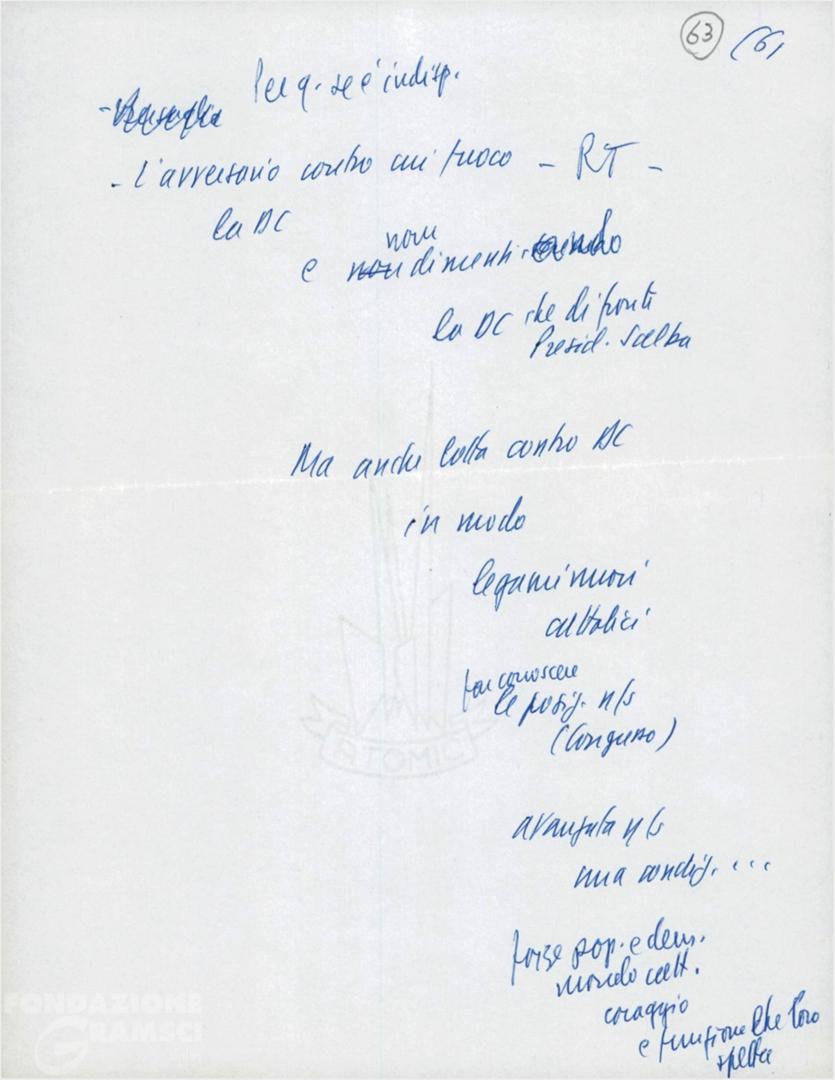 63 (6)
Per q. se è indisp.
- L'avversario contro cui fuoco - RT -
la DC
non
e non dimenti
la DC che di fronte
Presid. Scelba
Ma anche lotta contro DC
in modo
legami nuovi
cattolici
far conoscere
le posiz. n/s
(Congresso)
avanzata n/s
una condiz. ...
forze pop. e dem.
mondo catt.
coraggio
e funzione che loro
spetta
ATOMIC
FONDAZIONE
GRAMSCI